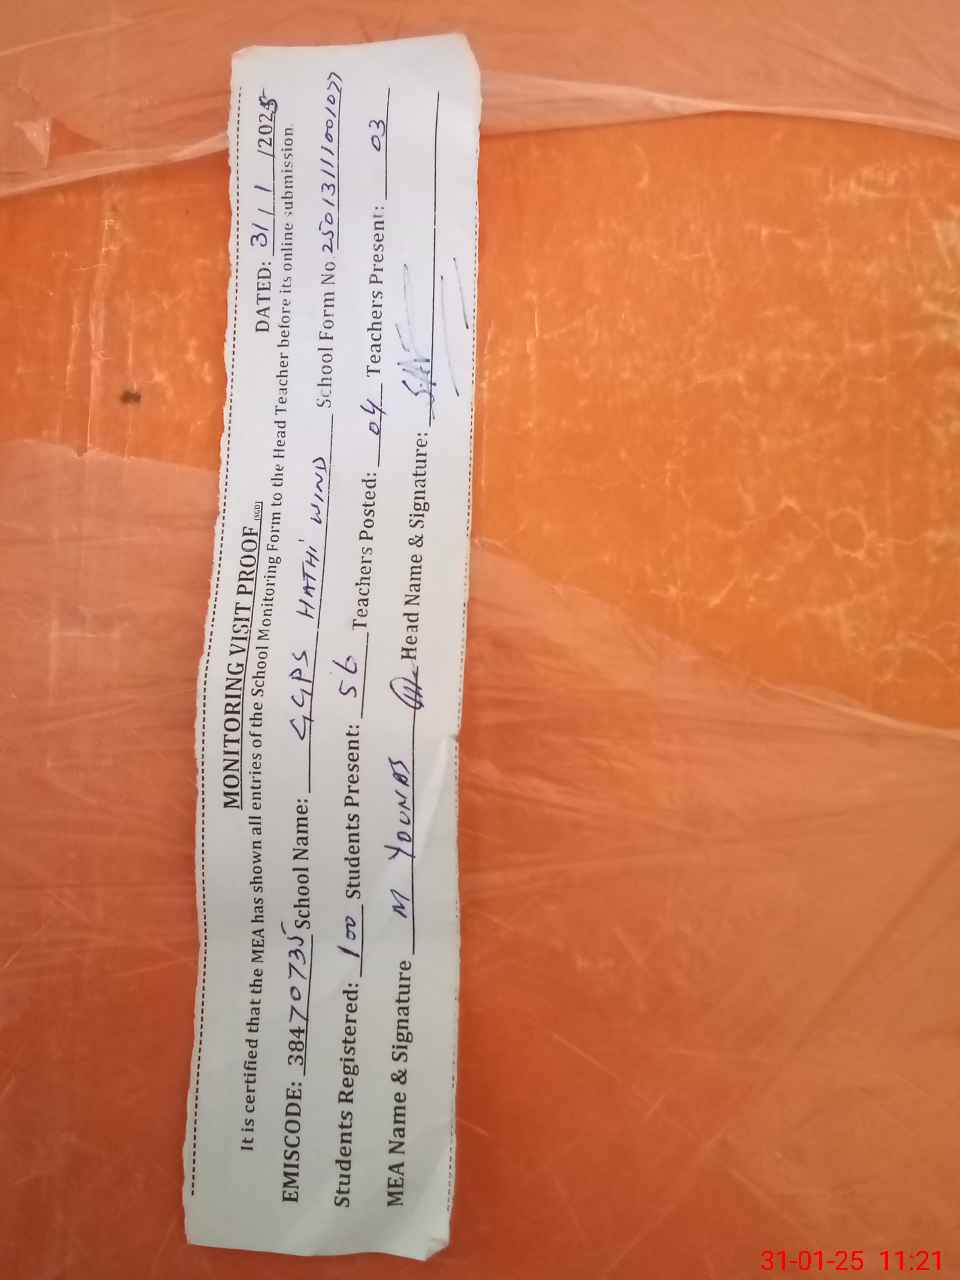 MONITORING VISIT PROOF (SGD)
DATED: 31/1/2025
It is certified that the MEA has shown all entries of the School Monitoring Form to the Head Teacher before its online submission.
EMISCODE: 38470735 School Name: GGPS HATHI WIND School Form No. 25013111001077
Students Registered: 100 Students Present: 56 Teachers Posted: 04 Teachers Present: 03
MEA Name & Signature M YOUNAS Head Name & Signature:
31-01-25 11:21